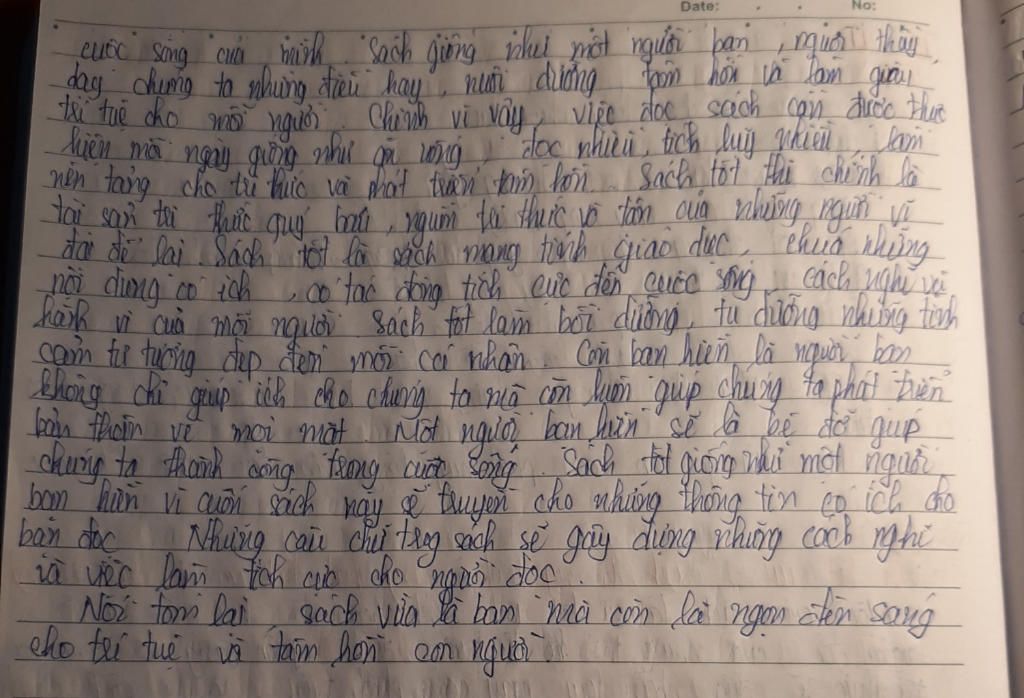 Date: . . No:
cuộc sống của mình. Sách giống như một người bạn, người thầy,
dạy chúng ta những điều hay, nuôi dưỡng tâm hồn và làm giàu
trí tuệ cho mỗi người. Chính vì vậy, việc đọc sách cần được thực
hiện mỗi ngày giống như ăn uống, đọc nhiều, tích luỹ nhiều, làm
nền tảng cho tri thức và phát triển tâm hồn. Sách tốt thì chính là
tài sản tri thức quý báu, nguồn tri thức vô tận của những người vĩ
đại để lại. Sách tốt là sách mang tính giáo dục, chứa những
nội dung có ích, có tác động tích cực đến cuộc sống, cách nghĩ và
hành vi của mỗi người. Sách tốt làm bồi dưỡng, tu dưỡng những tình
cảm tư tưởng đẹp đến mỗi cá nhân. Còn bạn hiền là người bạn
không chỉ giúp ích cho chúng ta mà còn luôn giúp chúng ta phát triển
bản thân về mọi mặt. Một người bạn hiền sẽ là bệ đỡ giúp
chúng ta thành công trong cuộc sống. Sách tốt giống như một người
bạn hiền vì cuốn sách này sẽ truyền cho những thông tin có ích cho
bạn đọc. Những câu chữ trog sách sẽ gây dựng những cách nghĩ
và việc làm tích cực cho người đọc.
Nói tóm lại, sách vừa là bạn mà còn là ngọn đèn sáng
cho trí tuệ và tâm hồn con người.